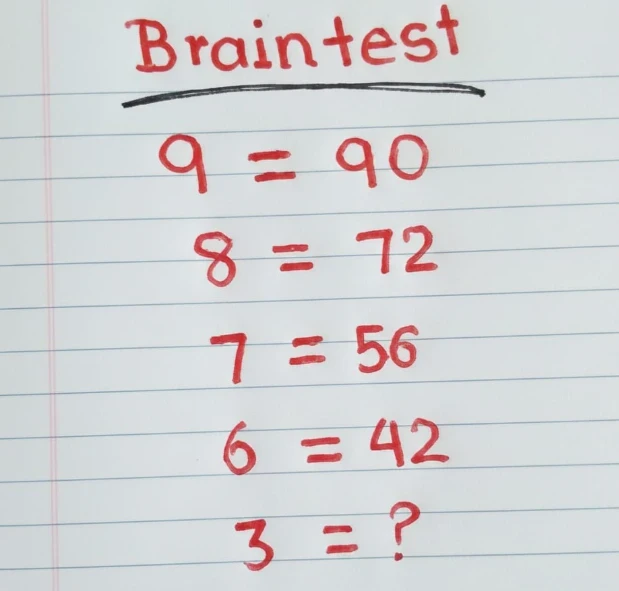 Braintest
9 = 90
8 = 72
7 = 56
6 = 42
3 = ?